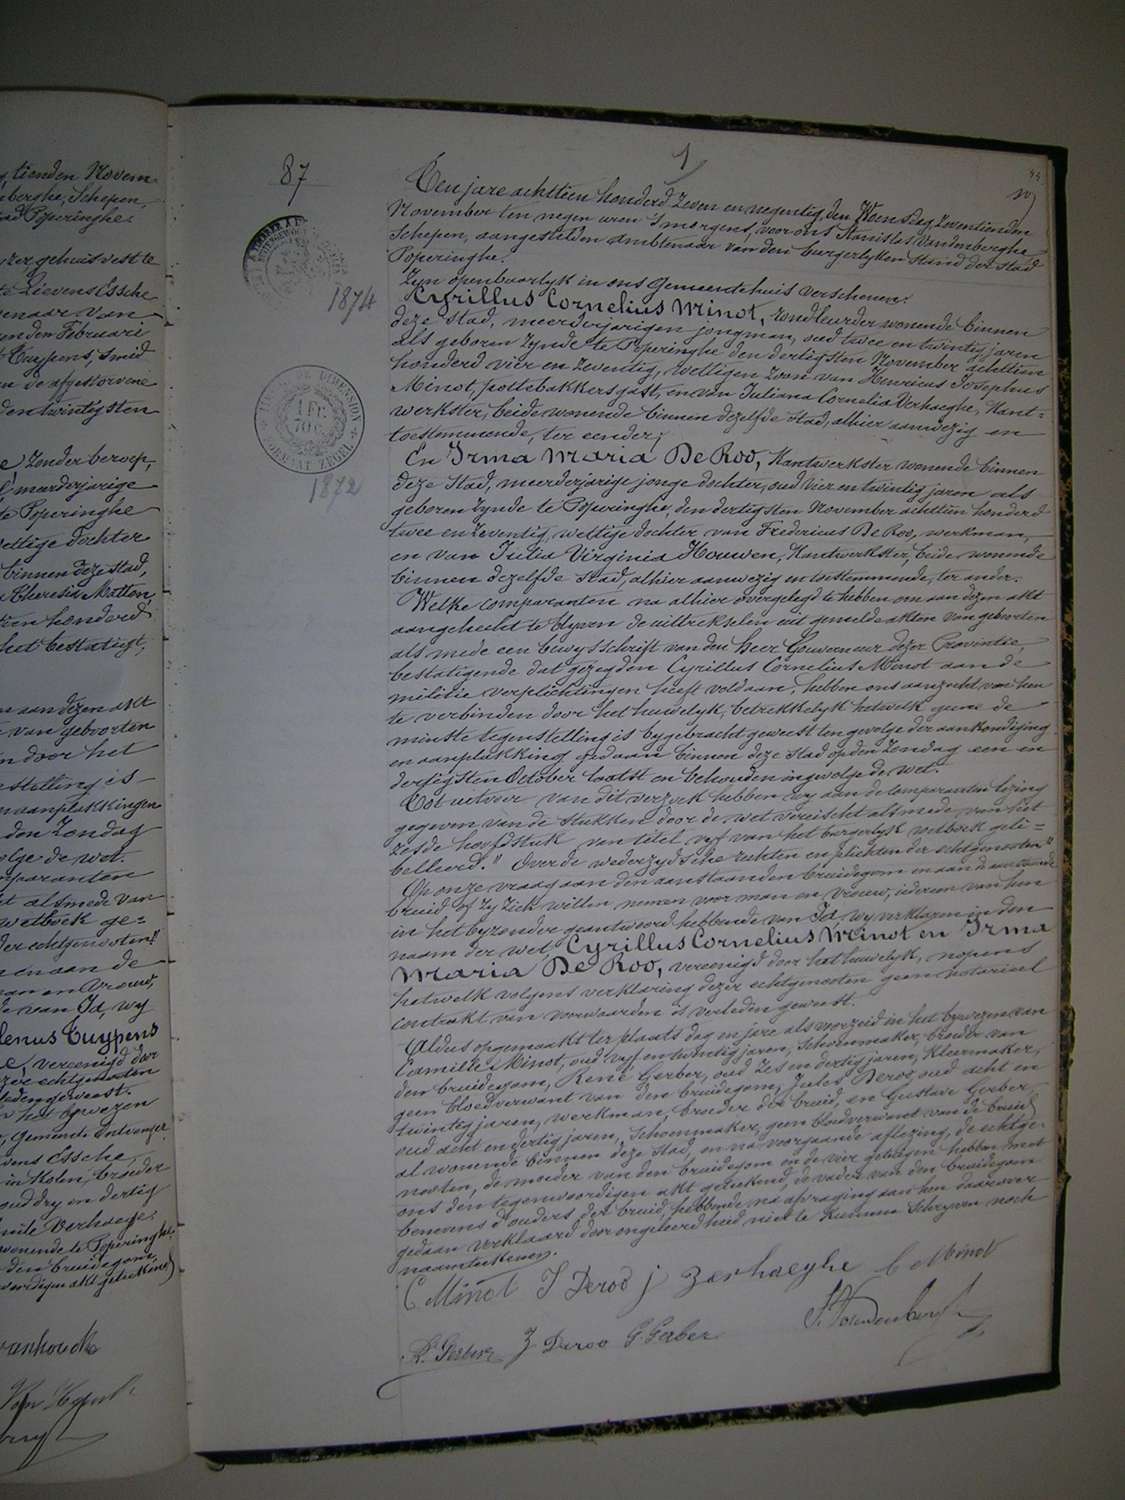 tienden Novem-
berghe, Schepen,
Poperinghe.
gehuisvest te
Lievens Essche
van
den Februari
Cuypens, smid
de afgestorvene
den twintigsten
zonder beroep,
meerderjarige
te Poperinghe
wettige dochter
binnen deze stad,
Theresia Matton,
honderd
het bestatigt,
aan dezen akt
van geboorten
door het
stelling is
aanplakkingen
den Zondag
volge de wet.
comparanten
alsmede van
wetboek ge=
der echtgenooten"
en aan de
man en vrouw,
van Ja, wy
Cuypens
vereenigd door
echtgenooten
verleden geweest.
het bywezen
Gemeente Ontvanger
Essche
in Kolen, broeder
oud dry en dertig
Emile Verhaeghe
wonende te Poperinghe
den bruidegom,
woordigen akt geteekend
Vanhoucke
87
1
1874
1 FR.
1872
Ten jare achttien honderd zeven en negentig, den Woensdag, zeventienden
November ten negen uren 's morgens, voor ons Stanislas Vandenberghe
Schepen, aangestelden Ambtenaar van den burgerlyken Stand der Stad
Poperinghe.
Zyn openbaarlyk in ons Gemeentehuis verschenen:
Cyrillus Cornelius Minot, wonende binnen
deze stad, meerderjarigen jongman, oud twee en twintig jaren
als geboren zynde te Poperinghe den dertigsten November achttien
honderd vier en zeventig, wettigen zoon van Henricus Josephus
Minot, pottebakkersgast, en van Juliana Cornelia Verhaeghe, Kant=
werkster, beide wonende binnen dezelfde stad, alhier aanwezig en
toestemmende, ter eender;
En Irma Maria De Roo, Kantwerkster wonende binnen
deze stad, meerderjarige jonge dochter, oud vier en twintig jaren als
geboren zynde te Poperinghe, den dertigsten November achttien honderd
twee en zeventig, wettige dochter van Fredericus De Roo, werkman,
en van Julia Virginia Houwen, Kantwerkster, beide wonende
binnen dezelfde stad, alhier aanwezig en toestemmende, ter ander.
Welke comparanten na alhier overgelegd te hebben om aan dezen akt
aangehecht te blyven de uittrekselen uit gemelde akten van geboorten
als mede een bewysschrift van den Heer Gouverneur dezer Provintie,
bestatigende dat gezegden Cyrillus Cornelius Minot aan de
militie verplichtingen heeft voldaan, hebben ons aanzocht van hen
te verbinden door het huwelyk, betrekkelyk hetwelk geene de
minste tegenstelling is bygebracht geweest ten gevolge der aankondiging
en aanplakking gedaan binnen deze stad op den Zondag een en
dertigsten October laatst en behouden ingevolge de wet.
Tot uitvoer van dit verzoek hebben wy aan de comparanten lezing
gegeven van de stukken door de wet vereischt alsmede van het
zesde hoofdstuk van titel vyf van het burgerlyk wetboek geti=
telleerd." Over de wederzydsche rechten en plichten der echtgenooten"
Op onze vraag aan den aanstaanden bruidegom en aan de aanstaande
bruid of zy zich willen nemen voor man en vrouw, iedereen van hen
in het byzonder geantwoord hebbende van Ja, wy verklaren in den
naam der wet, Cyrillus Cornelius Minot en Irma
Maria De Roo, vereenigd door het huwelyk, nopens
hetwelk volgens verklaring dezer echtgenooten geen notarieel
contrakt van voorwaarden is verleden geweest.
Aldus opgemaakt ter plaats dag en jare als voorzeid in het bywezen van
Camille Minot, oud vyf en twintig jaren, schoenmaker, broeder van
den bruidegom, René Gerber, oud zes en dertig jaren, kleermaker,
geen bloedverwant van den bruidegom, Jules Deroo, oud acht en
twintig jaren, werkman, broeder der bruid, en Gustave Gerber,
oud acht en dertig jaren, schoenmaker, geen bloedverwant van de bruid
al wonende binnen deze stad, en na voorgaande aflezing, de echtge-
nooten, de moeder van den bruidegom en de vier getuigen hebben met
ons den tegenwoordigen akt geteekend, de vader van den bruidegom
benevens d'ouders der bruid, hebbende na afvraging aan hen daarover
gedaan verklaard door ongeleerdheid niet te kunnen schryven noch
naamteekenen.
C Minot I Deroo j Verhaeghe C Minot
R. Gerber J Deroo G. Gerber St. Vandenberghe